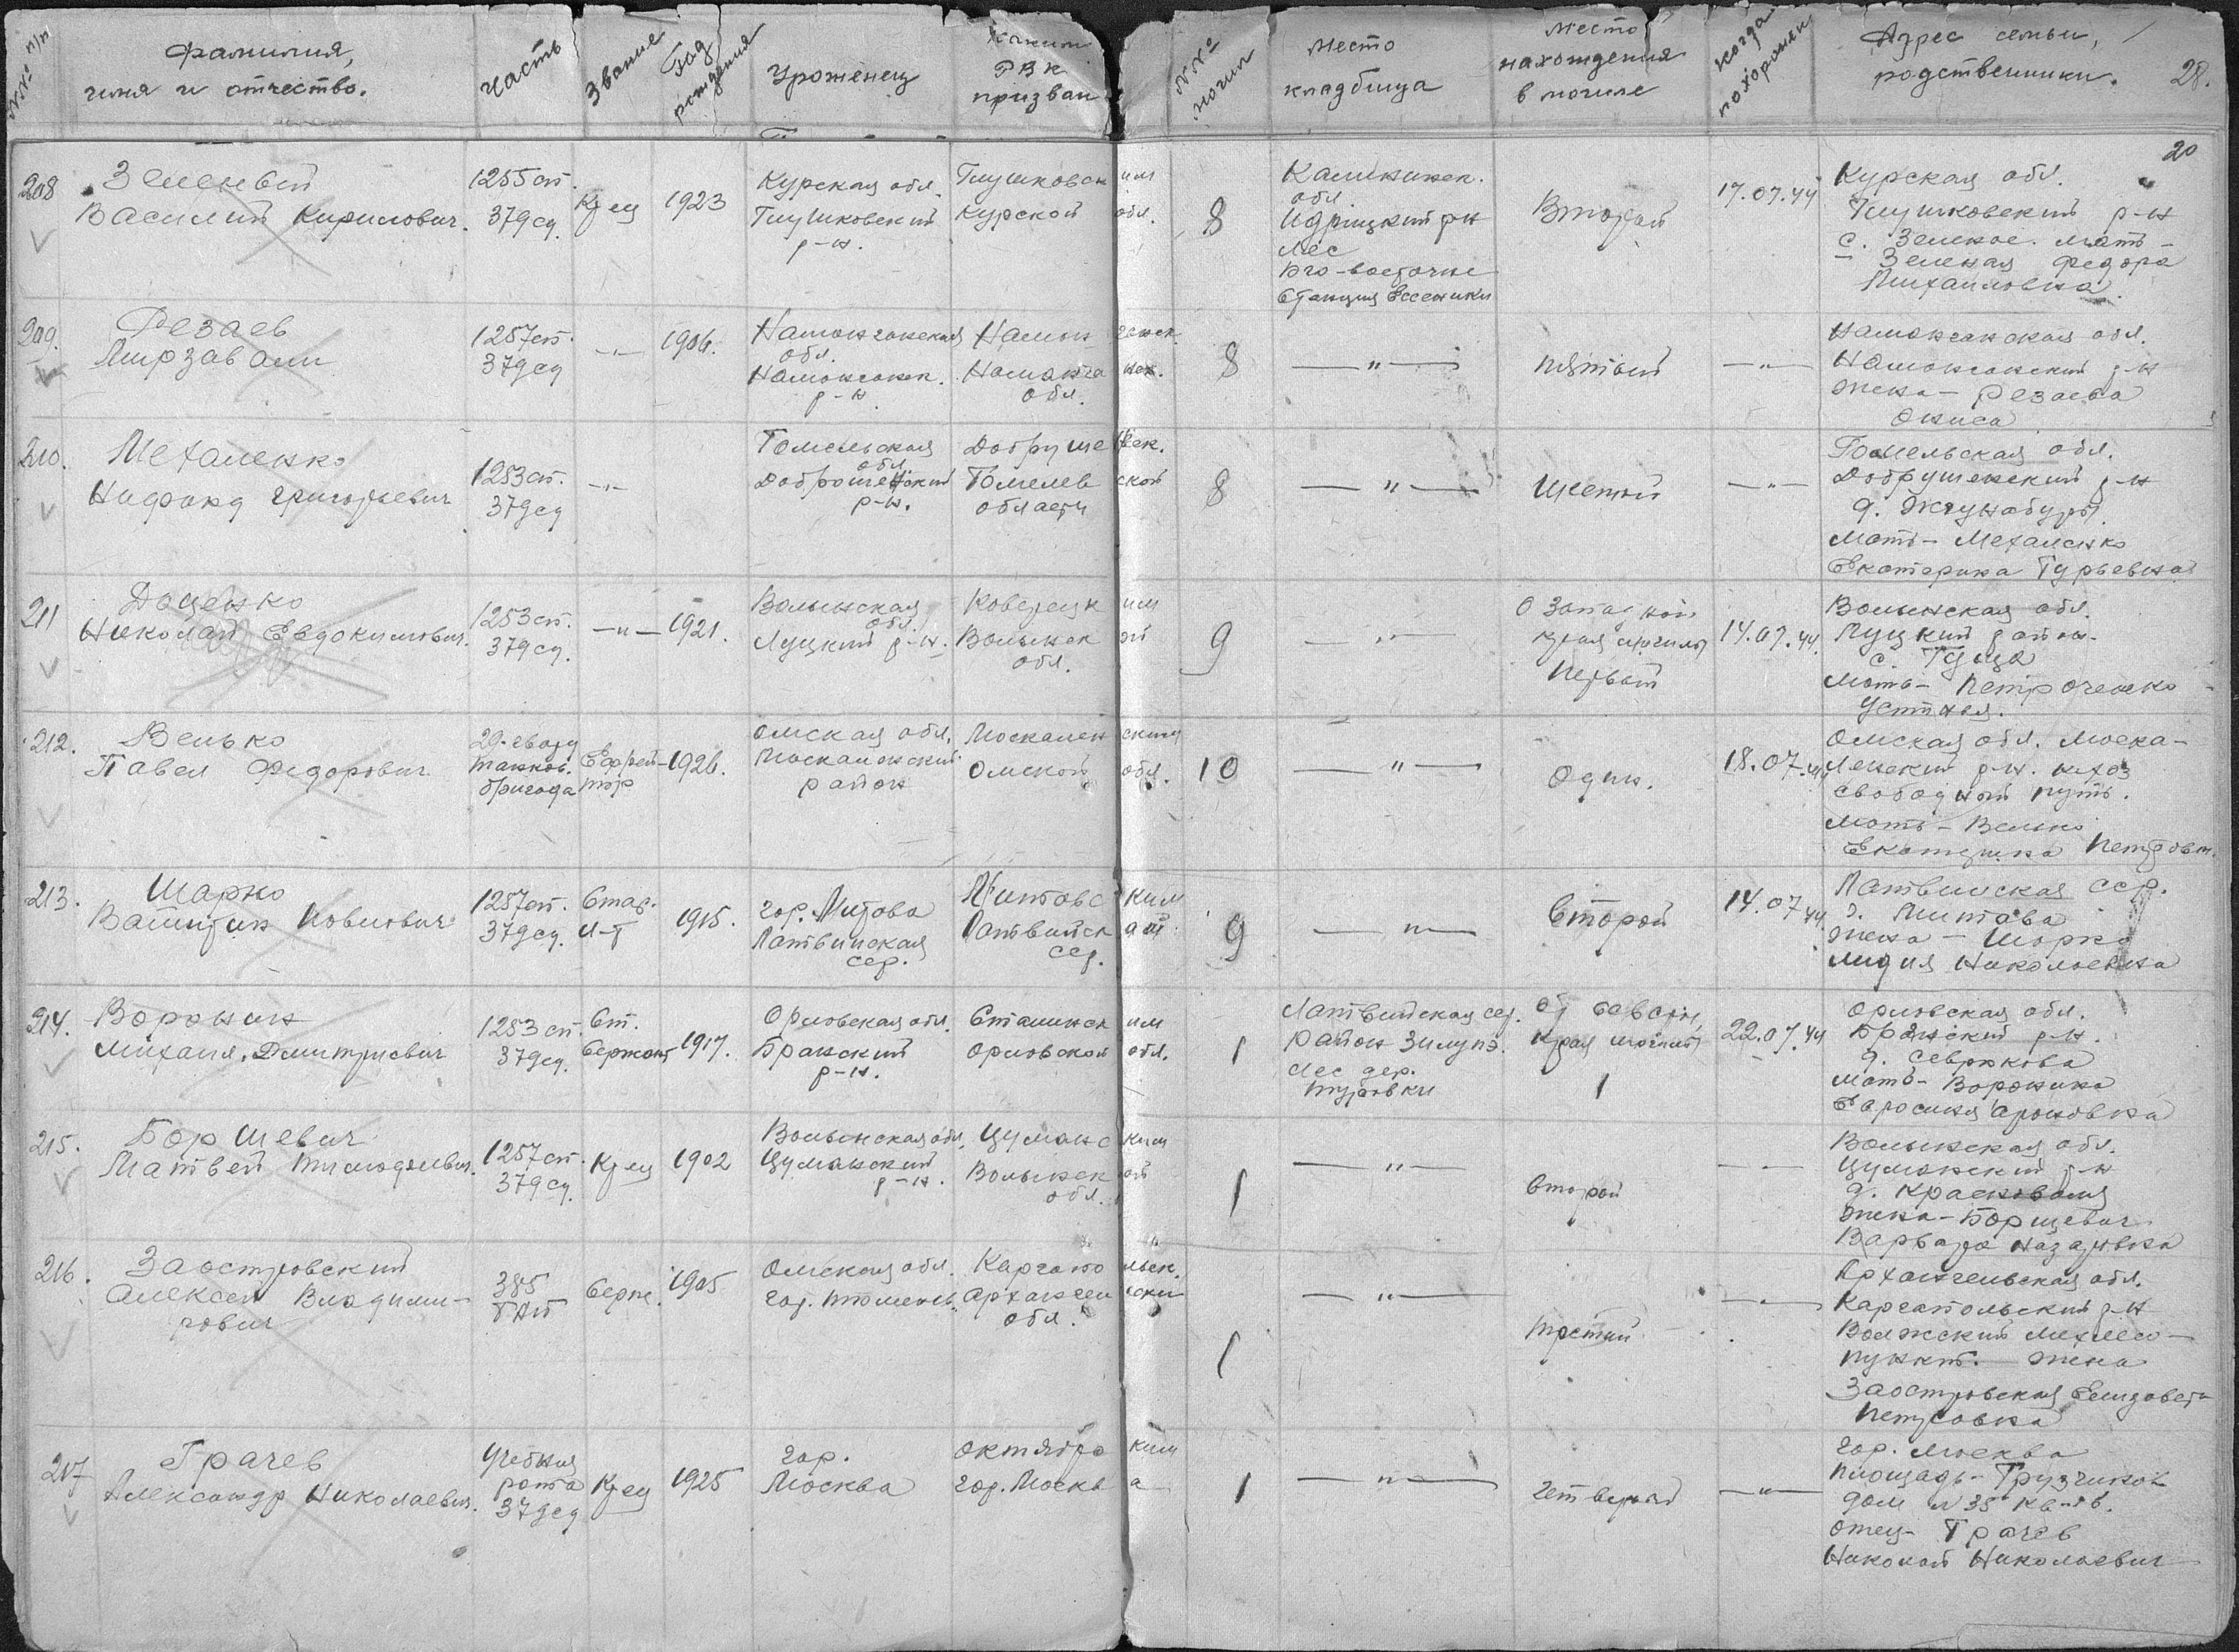 №№ п/п
Фамилия,
имя и отчество.
Часть
Звание
Год
рождения
Уроженец
Каким
РВК
призван
№№
могил
Место
кладбища
Место
нахождения
в могиле
Когда
похоронен
Адрес семьи,
родственники.
28.
20
208
Зеленый
Василий Кирилович.
1255 сп.
379 сд.
Кр-ец
1923
Курская обл.
Глушковский
р-н.
Глушковским
Курской обл.
8
Калининск.
обл.
Идрицкий р-н
лес
юго-восточне
станция Ессеники
Второй
17.07.44
Курская обл.
Глушковский р-н
с. Зеленое. мать -
Зеленая Федора
Михайловна.
209.
Резаев
Мирзавали
1257 сп.
379 сд
-"-
1906.
Намонганская
обл.
Намонганск.
р-н.
Намонганск.
Наманганск.
обл.
8
-"-
пятый
-"-
Наманганская обл.
Намонганский р-н
жена - Резаева
Ониса
210.
Механенко
Нафанд Григорьевич
1253 сп.
379 сд
-"-
Гомельская
обл.
Добрушенский
р-н.
Добрушенск.
Гомелевской
области
8
-"-
Шестой
-"-
Гомельская обл.
Добрушенский р-н
д. Жгунобуды
Мать - Механенко
Екатерина Гурьевна
211
Доценко
Николай Евдокимович.
1253 сп.
379 сд.
-"-
1921.
Волынская
обл.
Луцкий р-н.
Коверецким
Волынской
обл.
9
-"-
С западной
края могилы
Первый
14.07.44.
Волынская обл.
Луцкий район.
с. Гуща
Мать - Петроченко
Устиная.
212.
Велько
Павел Федорович
29. гвард
танков.
бригада
Ефрей-
тор
1926.
Омская обл,
Москаленский
район
Москаленским
Омской обл.
10
-"-
Один.
18.07.44
Омская обл. Моска-
ленский р-н. к-хоз
свободный путь.
Мать - Велько
Екатерина Петровн.
213.
Шарко
Валитин Повилович
1257 сп.
379 сд.
Стар.
л-т
1915.
гор. Митова
Латвийская
сср.
Митовским
Латвийской
сср.
9
-"-
Второй
14.07.44
Латвийская сср.
г. Митава
жена - Шарко
Лидия Николаевна
214.
Воронин
Михаил. Дмитриевич
1253 сп.
379 сд.
Ст.
Сержант
1917.
Орловская обл.
Брянский
р-н.
Сталинским
Орловской обл.
1
Латвийская сср.
район Зилупэ.
лес дер.
Туровки
От северн.
края могилы
1
22.07.44
Орловская обл.
Брянский р-н.
д. Севрюкова
Мать - Воронина
Ефросиния Ароновна
215.
Борщевич
Матвей Тимофеевич.
1257 сп.
379 сд.
Кр-ец
1902
Волынская обл.
Цуманский
р-н.
Цуманским
Волынской
обл.
1
-"-
второй
-"-
Волынская обл.
Цуманский р-н
д. Красноволя
жена - Борщевич
Варвара Назаровна
216.
Заостровский
Алексей Владими-
рович
385
ГАП
Серж.
1905
Омская обл.
гор. Тюмень.
Каргапольск.
Архангельской
обл.
1
-"-
третий
-"-
Архангельская обл.
Каргапольский р-н
Волжский мехлесо-
пункт. жена
Заостровская Елизовета
Петровна
217
Грачев
Александр Николаевич.
Учебная
рота
379 сд
Кр-ец
1925
гор.
Москва
Октябрским
гор. Москва
1
-"-
четвертый
-"-
гор. Москва
площадь - Грузчиков
дом № 35 кв-6.
отец - Грачев
Николай Николаевич